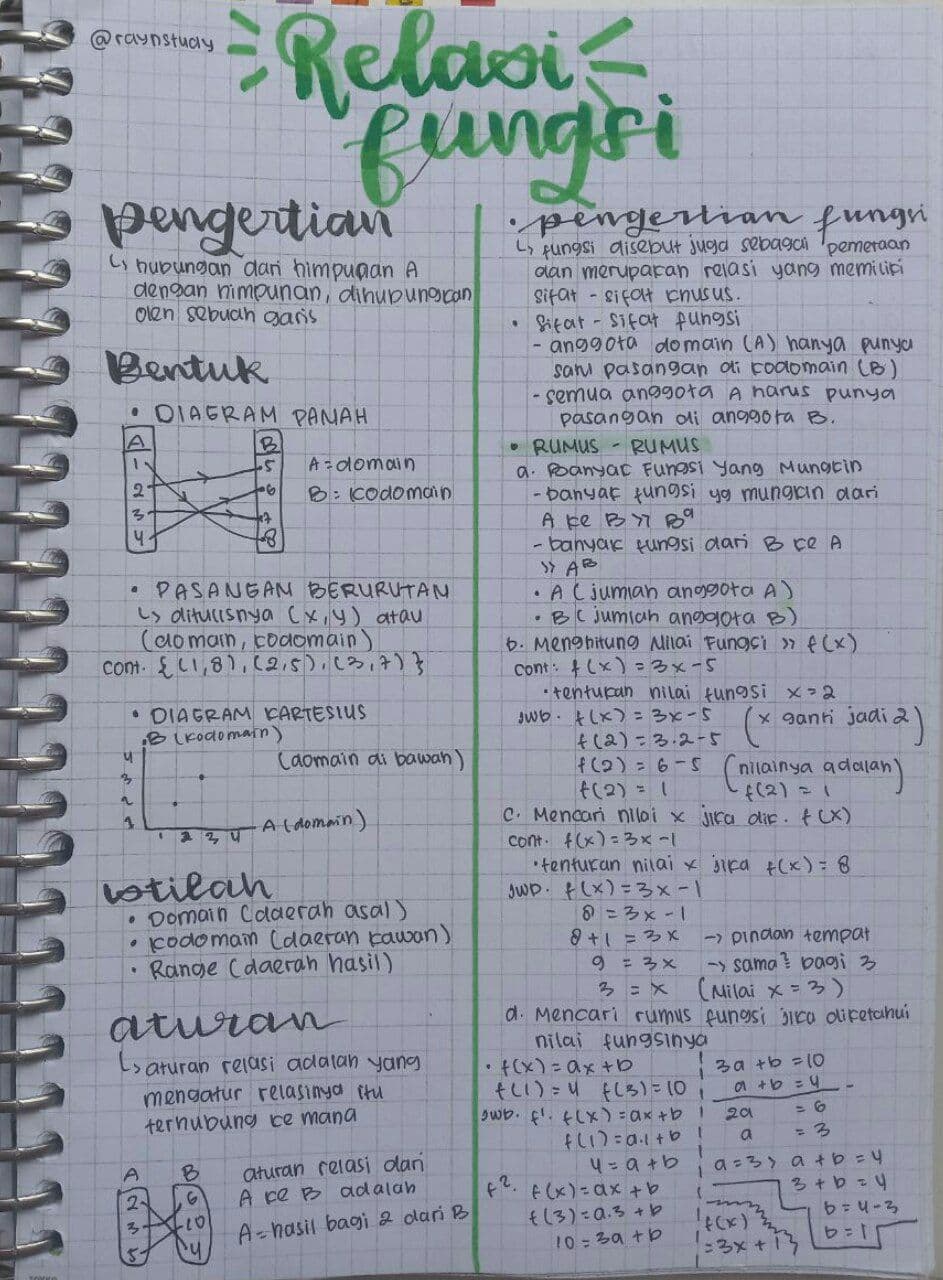 @raynstudy
Relasi
fungsi
pengertian
↳ hubungan dari himpunan A
dengan himpunan, dihubungkan
oleh sebuah garis
Bentuk
• DIAGRAM PANAH
A B
1 5
2 6
3 7
4 8
A = domain
B = kodomain
• PASANGAN BERURUTAN
↳ ditulisnya (x,y) atau
(domain, kodomain)
cont. {(1,8), (2,5), (3,7)}
• DIAGRAM KARTESIUS
B (kodomain)
4
3
2
1
(domain di bawah)
1 2 3 4
A (domain)
istilah
• Domain (daerah asal)
• kodomain (daerah kawan)
• Range (daerah hasil)
aturan
↳ aturan relasi adalah yang
mengatur relasinya itu
terhubung ke mana
A B
2 6
3 10
5 4
aturan relasi dari
A ke B adalah
A = hasil bagi 2 dari B
• pengertian fungsi
↳ fungsi disebut juga sebagai pemetaan
dan merupakan relasi yang memiliki
sifat - sifat khusus.
• Sifat - sifat fungsi
- anggota domain (A) hanya punya
satu pasangan di kodomain (B)
- semua anggota A harus punya
pasangan di anggota B.
• RUMUS - RUMUS
a. Banyak Fungsi Yang Mungkin
- banyak fungsi yg mungkin dari
A ke B >> Bᵃ
- banyak fungsi dari B ke A
>> Aᴮ
• A (jumlah anggota A)
• B (jumlah anggota B)
b. Menghitung Nilai Fungsi >> f(x)
cont: f(x) = 3x - 5
• tentukan nilai fungsi x = 2
jwb. f(x) = 3x - 5 (x ganti jadi 2)
f(2) = 3.2 - 5
f(2) = 6 - 5 (nilainya adalah
f(2) = 1 f(2) = 1)
c. Mencari nilai x jika dik. f(x)
cont. f(x) = 3x - 1
• tentukan nilai x jika f(x) = 8
jwb. f(x) = 3x - 1
8 = 3x - 1
8 + 1 = 3x → pindah tempat
9 = 3x → sama² bagi 3
3 = x (Nilai x = 3)
d. Mencari rumus fungsi jika diketahui
nilai fungsinya
• f(x) = ax + b
f(1) = 4 f(3) = 10
jwb. f¹. f(x) = ax + b
f(1) = a.1 + b
4 = a + b
f². f(x) = ax + b
f(3) = a.3 + b
10 = 3a + b
3a + b = 10
a + b = 4 -
2a = 6
a = 3
a = 3 > a + b = 4
3 + b = 4
b = 4 - 3
b = 1
f(x)
= 3x + 1